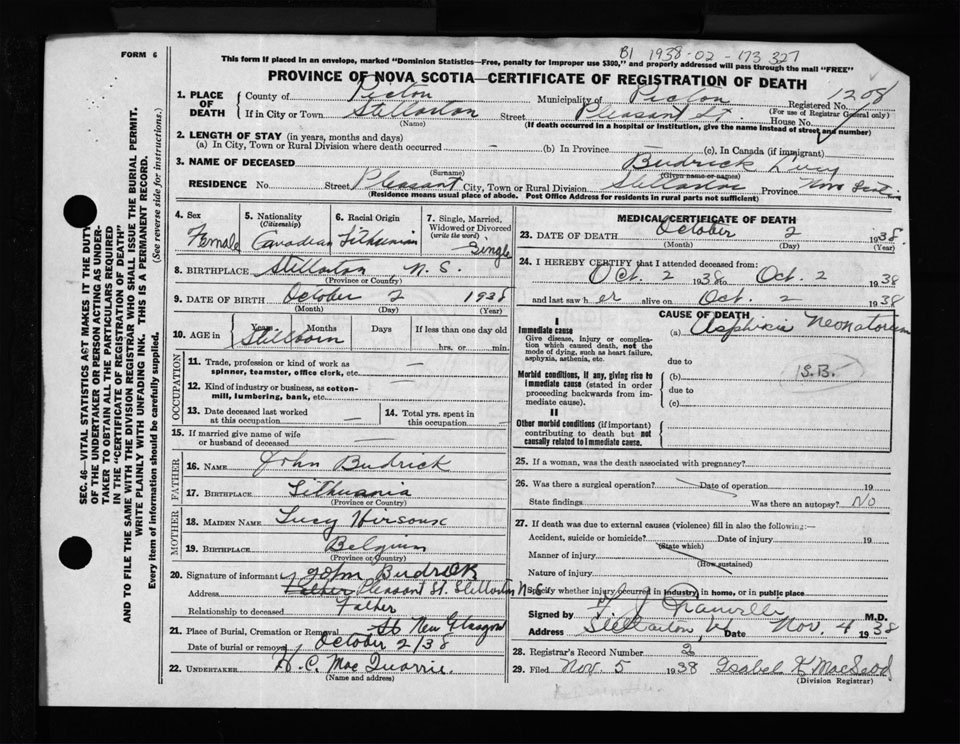 FORM 6
B1 1938-02-173 327
This form if placed in an envelope, marked "Dominion Statistics—Free, penalty for improper use $300," and properly addressed will pass through the mail "FREE"
PROVINCE OF NOVA SCOTIA—CERTIFICATE OF REGISTRATION OF DEATH
1. PLACE OF DEATH { County of Pictou Municipality of Pictou Registered No. 1208
(For use of Registrar General only)
If in City or Town Stellarton Street Pleasant St. House No.
(Name) (If death occurred in a hospital or institution, give the name instead of street and number)
2. LENGTH OF STAY (in years, months and days)
(a) In City, Town or Rural Division where death occurred — (b) In Province (c). In Canada (if immigrant)
3. NAME OF DECEASED Budrick Lucy
(Surname) (Given name or names)
RESIDENCE No. Street Pleasant City, Town or Rural Division Stellarton Province Nova Scotia
(Residence means usual place of abode. Post Office Address for residents in rural parts not sufficient)
4. Sex Female
5. Nationality (Citizenship) Canadian
6. Racial Origin Lithuanian
7. Single, Married, Widowed or Divorced (write the word) Single
8. BIRTHPLACE Stellarton, N.S.
(Province or Country)
9. DATE OF BIRTH October 2 1938
(Month) (Day) (Year)
10. AGE in { Years Months Days If less than one day old
Stillborn hrs. or min.
OCCUPATION
11. Trade, profession or kind of work as spinner, teamster, office clerk, etc. —
12. Kind of industry or business, as cotton-mill, lumbering, bank, etc. —
13. Date deceased last worked at this occupation —
14. Total yrs. spent in this occupation —
15. If married give name of wife or husband of deceased —
FATHER
16. NAME John Budrick
17. BIRTHPLACE Lithuania
(Province or Country)
MOTHER
18. MAIDEN NAME Lucy
19. BIRTHPLACE Belgium
(Province or Country)
20. Signature of informant John Budrick
Address Father Pleasant St. Stellarton N.S
Relationship to deceased Father
21. Place of Burial, Cremation or Removal New Glasgow
Date of burial or removal October 2/38
22. UNDERTAKER H. C. MacQuarrie.
(Name and address)
MEDICAL CERTIFICATE OF DEATH
23. DATE OF DEATH October 2 1938.
(Month) (Day) (Year)
24. I HEREBY CERTIFY that I attended deceased from:
Oct. 2 1938 to Oct. 2 1938
and last saw h er alive on Oct. 2 1938
CAUSE OF DEATH
I
Immediate cause
Give disease, injury or complication which caused death, not the mode of dying, such as heart failure, asphyxia, asthenia, etc.
(a) Asphixia Neonatorum
due to
Morbid conditions, if any, giving rise to immediate cause (stated in order proceeding backwards from immediate cause).
(b) S.B.
due to
(c)
II
Other morbid conditions (if important) contributing to death but not causally related to immediate cause.
25. If a woman, was the death associated with pregnancy?
26. Was there a surgical operation? Date of operation 19
State findings Was there an autopsy? No
27. If death was due to external causes (violence) fill in also the following:—
Accident, suicide or homicide? Date of injury 19
(State which)
Manner of injury
(How sustained)
Nature of injury
Specify whether injury occurred in industry, in home, or in public place
Signed by M.D.
Address Stellarton, Date Nov. 4 1938
28. Registrar's Record Number 2
29. Filed Nov. 5 1938 Isabel K MacLeod
(Division Registrar)
SEC. 46—VITAL STATISTICS ACT MAKES IT THE DUTY
OF THE UNDERTAKER OR PERSON ACTING AS UNDER-
TAKER TO OBTAIN ALL THE PARTICULARS REQUIRED
IN THE "CERTIFICATE OF REGISTRATION OF DEATH"
AND TO FILE THE SAME WITH THE DIVISION REGISTRAR WHO SHALL ISSUE THE BURIAL PERMIT.
WRITE PLAINLY WITH UNFADING INK. THIS IS A PERMANENT RECORD.
Every item of information should be carefully supplied. (See reverse side for instructions.)